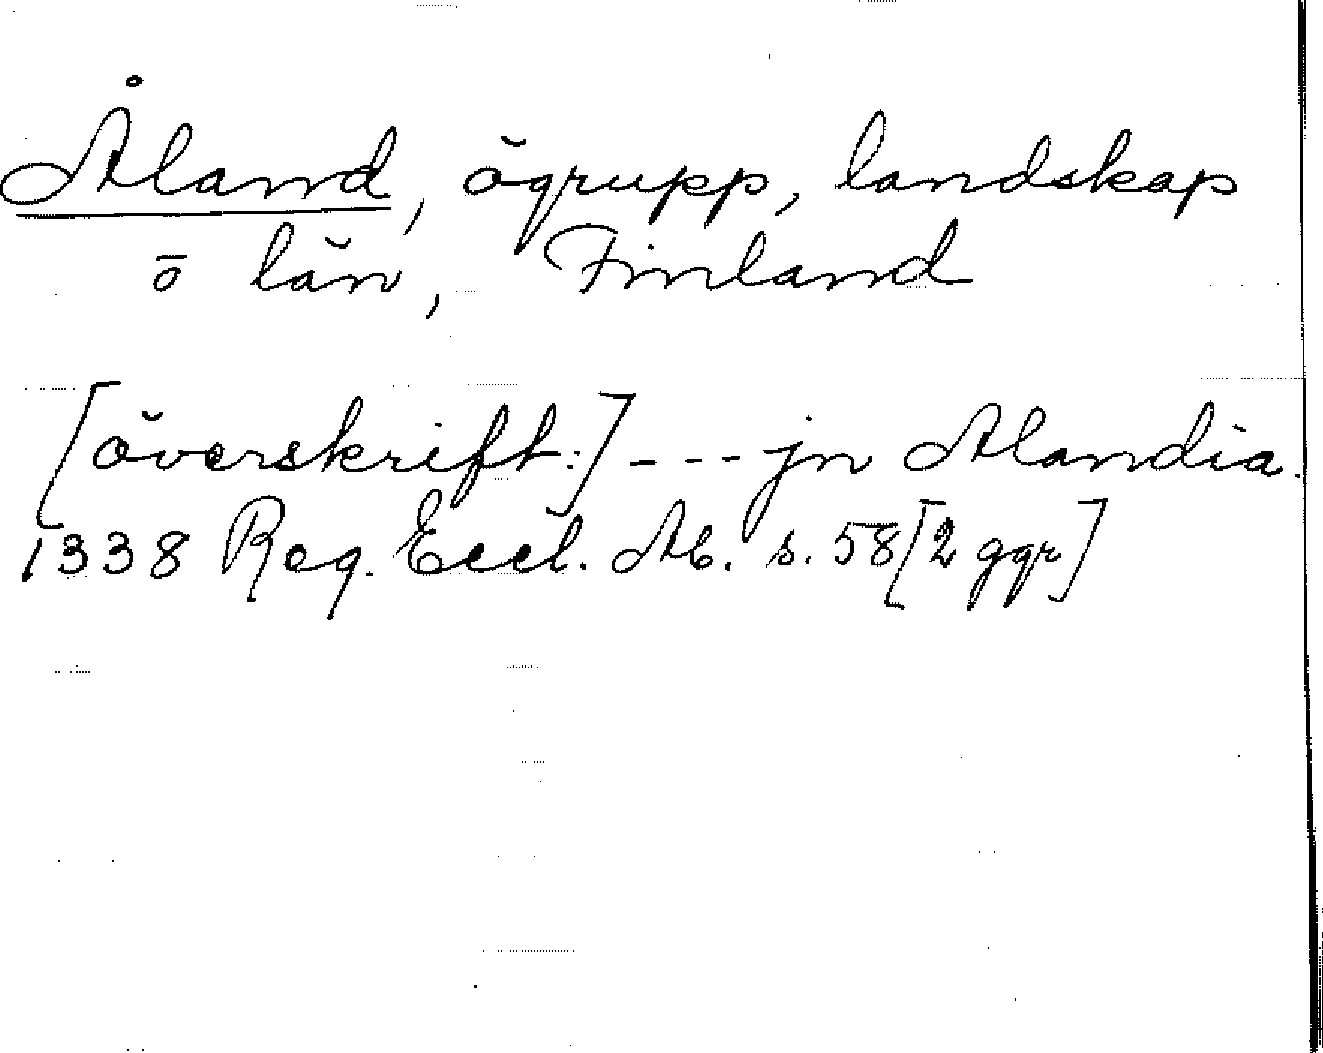 Åland, ögrupp, landskap
o län, Finland
[överskrift:] - - - jn Alandia.
1338 Reg. Eccl. Ab. s. 58 [2 ggr]